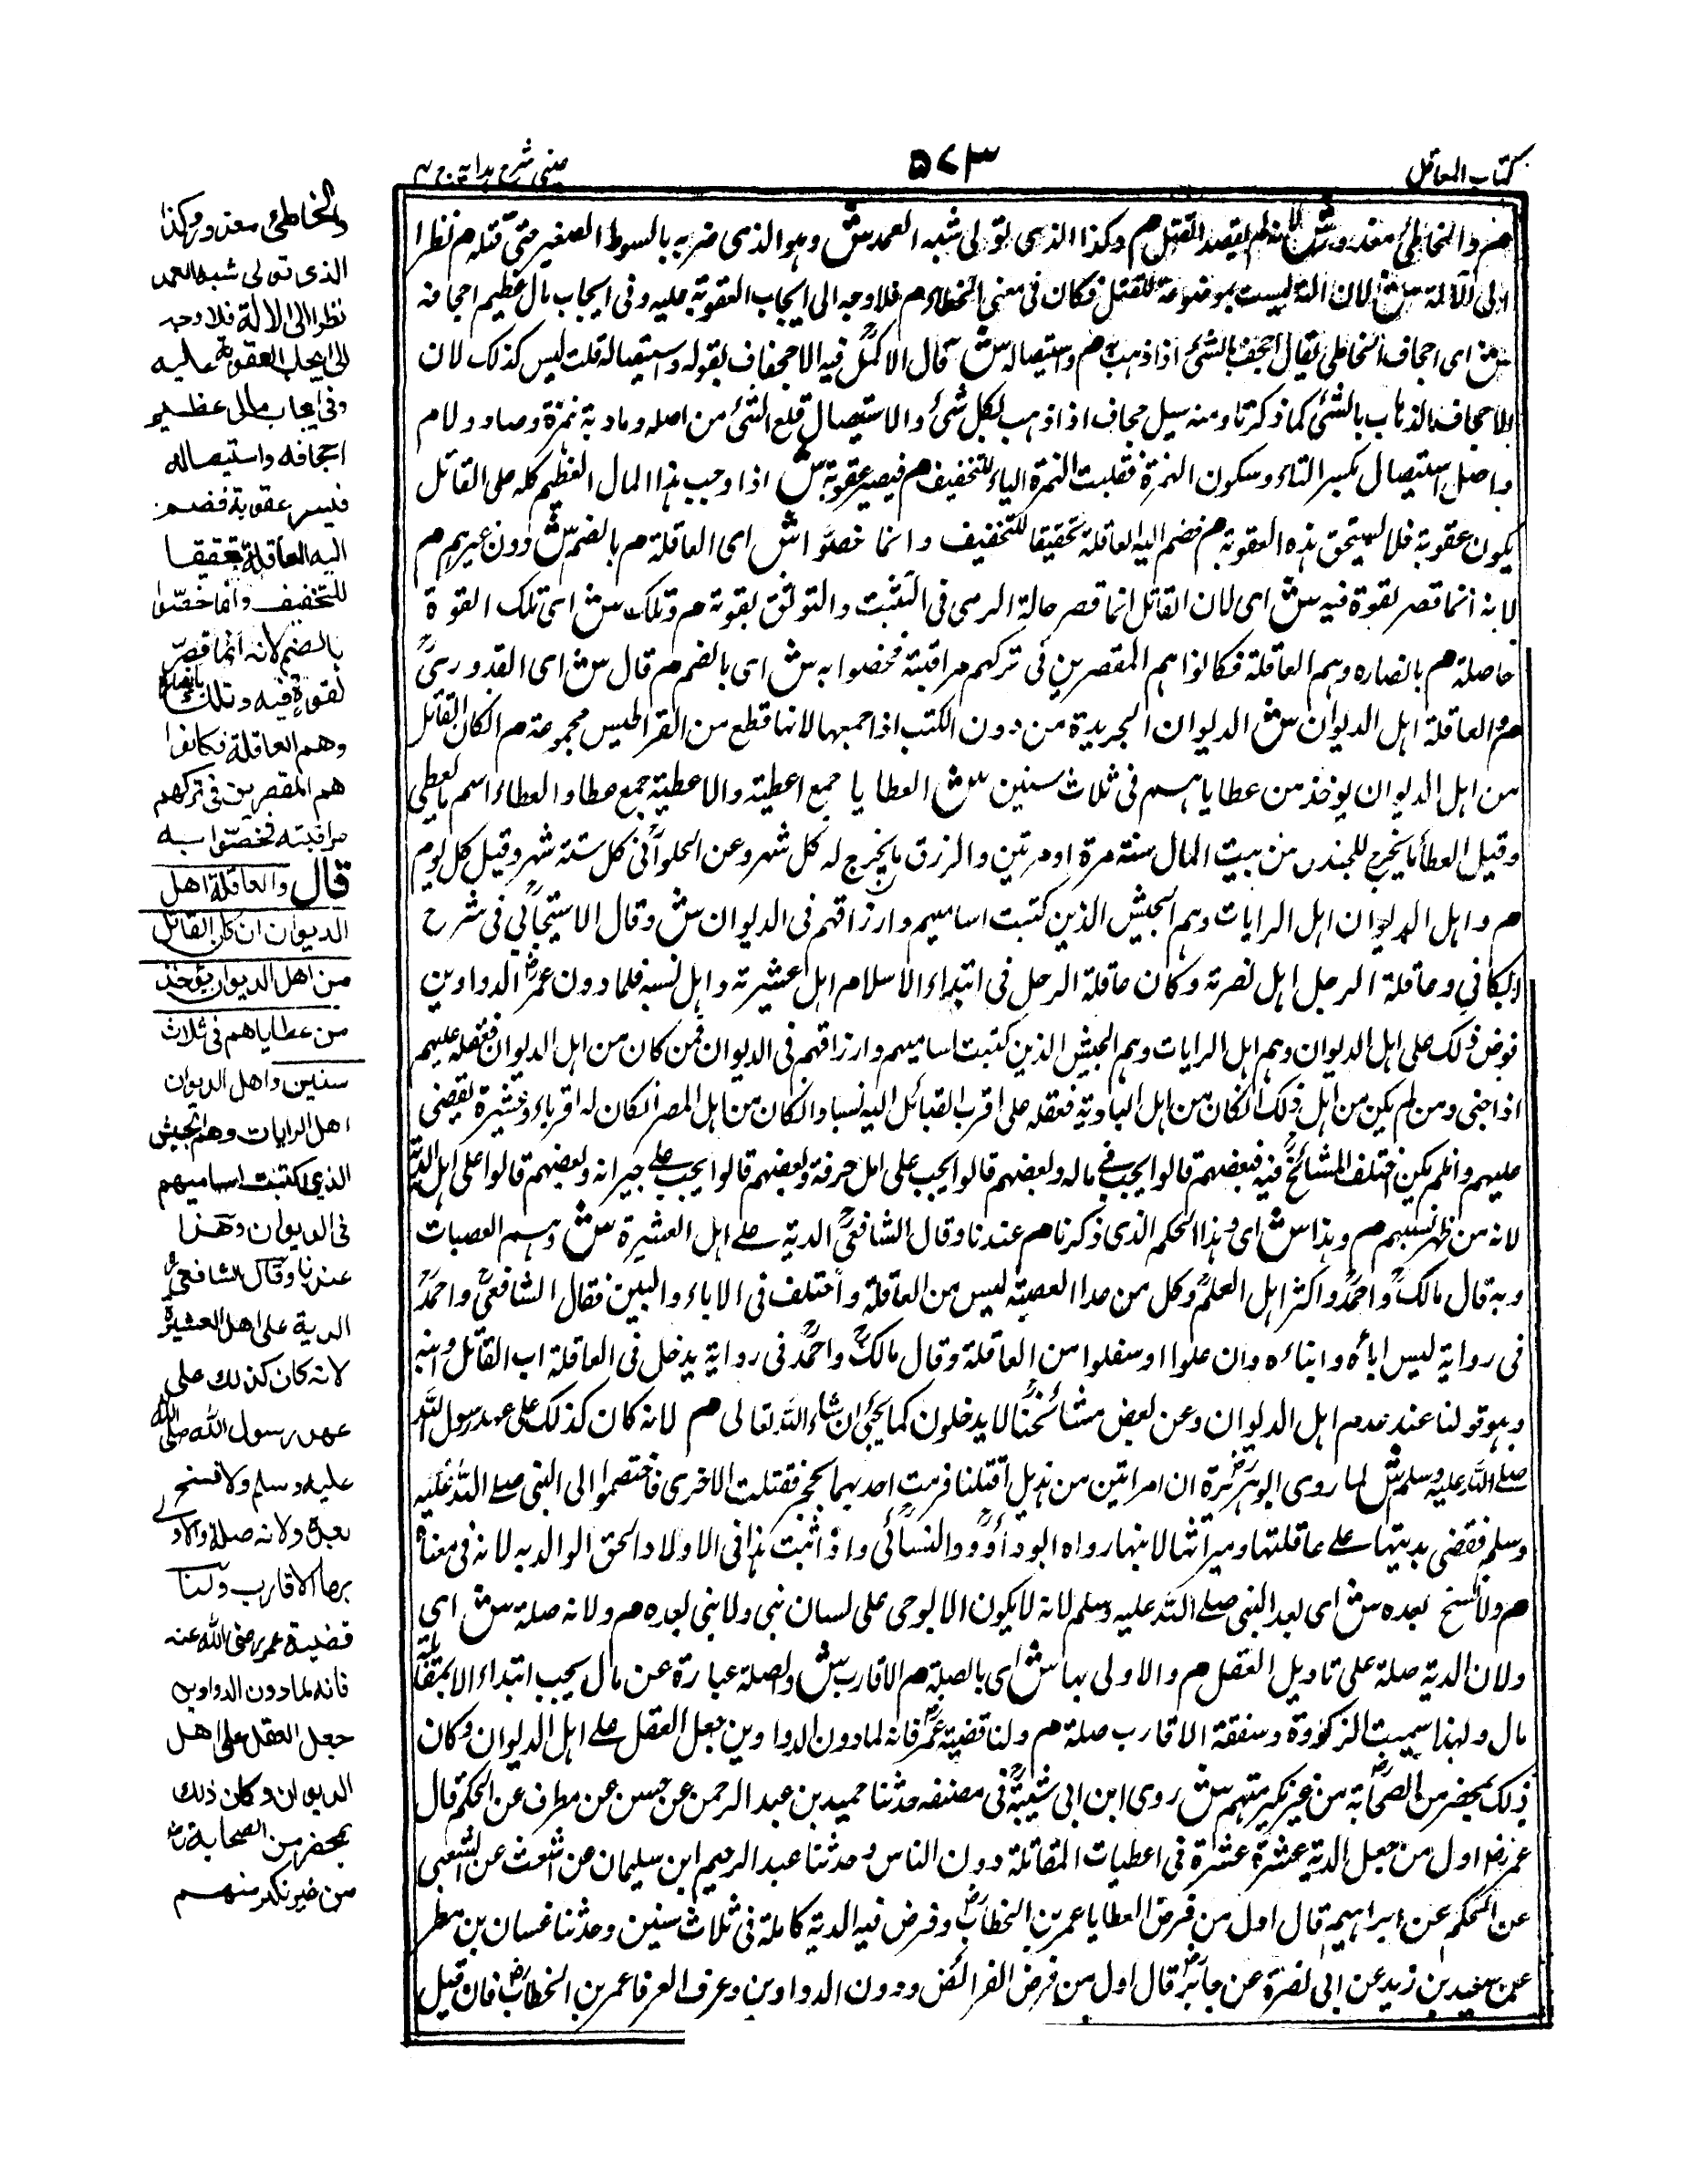 كتاب المعاقل
۵۷۳
عينى شرح هدايه ج ۴
هم والخاطئ معذور ش لانه لم يقصد القتل هم وكذا الذى تولى شبه العمد ش وهو الذى ضربه بالسوط الصغير حتى قتله هم نظرا
الى الآلة ش لان آلته ليست بموضوعة للقتل فكان فى معنى الخطاء هم فلا وجه الى ايجاب العقوبة عليه وفى ايجاب مال عظيم اجحافه
ش اى اجحاف الخاطى يقال اجحف بالشئ اذا ذهب به هم واستيصاله ش قال الاكمل فيه الاجحاف بقوله واستيصاله قلت ليس كذلك لان
الاجحاف الذهاب بالشئ كما ذكرنا ومنه سيل جحاف اذا ذهب بكل شئ والاستيصال قلع الشئ من اصله ومادته همزة وصاد ولام
واصل استيصال بكسر التاء وسكون الهمزة فقلبت الهمزة الياء للتخفيف هم فيصير عقوبة ش اذا وجب هذا المال العظيم كله على القاتل
يكون عقوبة فلا يستحق هذه العقوبة هم فضم اليه العاقلة تحقيقا للتخفيف وانما خصوا ش اى العاقلة هم بالضم ش دون غيرهم هم
لانه انما قصر لقوة فيه ش اى لان القاتل انما قصر حالة الرمى فى التثبت والتوثق بقوته هم وتلك ش اى تلك القوة
حاصلة هم بانصاره وهم العاقلة فكانوا هم المقصرين فى تركهم مراقبته فخصوا به ش اى بالضم هم قال ش اى القدورى
هم والعاقلة اهل الديوان ش الديوان الجريدة من دون الكتب اذا جمعها لانها قطع من القراطيس مجموعة هم ان كان القاتل
من اهل الديوان يوخذ من عطاياهم فى ثلاث سنين ش العطايا جمع اعطية والاعطية جمع عطاء والعطاء اسم ما يعطى
وقيل العطاء ما يخرج للجندى من بيت المال سنة مرة او مرتين والرزق ما يخرج له كل شهر وعن الحلوائى كل ستة شهر وقيل كل يوم
هم واهل الديوان اهل الرايات وهم الجيش الذين كتبت اساميهم وارزاقهم فى الديوان ش وقال الاسبيجابى فى شرح
الكافى وعاقلة الرجل اهل نصرته وكان عاقلة الرجل فى ابتداء الاسلام اهل عشيرته واهل نسبه فلما دون عمر الدواوين
فوض ذلك على اهل الديوان وهم اهل الرايات وهم الجيش الذين كتبت اساميهم وارزاقهم فى الديوان فمن كان من اهل الديوان فعقله عليهم
اذا جنى ومن لم يكن من اهل ذلك ان كان من اهل البادية فعقله على اقرب القبائل اليه نسبا وان كان من اهل المصر ان كان له اقرباء وعشيرة يقضى
عليهم وان لم يكن اختلف المشائخ فيه فبعضهم قالوا يجب فى ماله وبعضهم قالوا يجب على اهل حرفة وبعضهم قالوا يجب على جيرانه وبعضهم قالوا على اهل الدية
لانه من ظهر نسبهم هم وهذا ش اى وهذا الحكم الذى ذكرنا هم عندنا وقال الشافعى الدية على اهل العشيرة ش وهم العصبات
وبه قال مالك واحمد واكثر اهل العلم وكل من عدا العصبة ليس من العاقلة واختلف فى الاباء والبنين فقال الشافعى واحمد
فى رواية ليس اباؤه وابناءه وان علوا او سفلوا من العاقلة وقال مالك واحمد فى رواية يدخل فى العاقلة اب القاتل وابنه
وهو قولنا عند عدم اهل الديوان وعن بعض مشائخنا لا يدخلون كما يجئ ان شاء الله تعالى هم لانه كان كذلك على عهد رسول الله
صلى الله عليه وسلم ش لما روى ابو هريرة ان امراتين من هذيل اقتتلتا فرمت احدهما بحجر فقتلت الاخرى فاختصموا الى النبى صلى الله عليه
وسلم فقضى بديتها على عاقلتها وميراثها لابنها رواه ابو داؤد والنسائى واذا ثبت هذا فى الاولاد الحق الوالد به لانه فى معناه
هم ولا نسخ بعده ش اى بعد النبى صلى الله عليه وسلم لانه لا يكون الا بوحى على لسان نبى ولا نبى بعده هم ولانه صلة ش اى
ولان الدية صلة على تاويل العقل هم والاولى بها ش اى بالصلة هم الاقارب ش والصلة عبارة عن مال يجب ابتداء لا بمقابلة
مال ولهذا سميت الزكوة ونفقة الاقارب صلة هم ولنا قضية عمر فانه لما دون الدواوين جعل العقل على اهل الديوان وكان
ذلك بمحضر من الصحابة من غير نكير منهم ش روى ابن ابى شيبة فى مصنفه حدثنا حميد بن عبد الرحمن عن حسن عن مطرف عن الحكم قال
عمر اول من جعل الدية عشرة عشرة فى اعطيات المقاتلة دون الناس وحدثنا عبد الرحيم ابن سليمان عن اشعث عن الشعبى
عن الحكم عن ابراهيم قال اول من فرض العطايا عمر بن الخطاب وفرض فيه الدية كاملة فى ثلاث سنين وحدثنا غسان بن مضر
عن سعيد بن زيد عن ابى نضرة عن جابر قال اول من فرض الفرائض ودون الدواوين وعرف العرفا عمر بن الخطاب فان قيل
والخاطئ معذور وكذا
الذى تولى شبه العمد
نظرا الى الالة فلا وجه
الى ايجاب العقوبة عليه
وفى ايجاب مال عظيم
اجحافه واستيصاله
فيصير عقوبة فضم
اليه العاقلة تحقيقا
للتخفيف وانما خصوا
بالضم لانه انما قصر
لقوة فيه وتلك بانصاره
وهم العاقلة فكانوا
هم المقصرين فى تركهم
مراقبته فخصوا به
قال والعاقلة اهل
الديوان ان كان القاتل
من اهل الديوان يؤخذ
من عطاياهم فى ثلاث
سنين واهل الديوان
اهل الرايات وهم الجيش
الذين كتبت اساميهم
فى الديوان وهذا
عندنا وقال الشافعى
الدية على اهل العشيرة
لانه كان كذلك على
عهد رسول الله صلى الله
عليه وسلم ولا نسخ
بعده ولانه صلة والاولى
بها الاقارب ولنا
قضية عمر رضى الله عنه
فانه لما دون الدواوين
جعل العقل على اهل
الديوان وكان ذلك
بمحضر من الصحابة
من غير نكير منهم